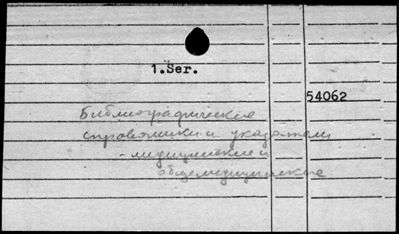 1.Ser.
54062
Библиографические
справочники и указатели
- медицинские и
общемедицинские